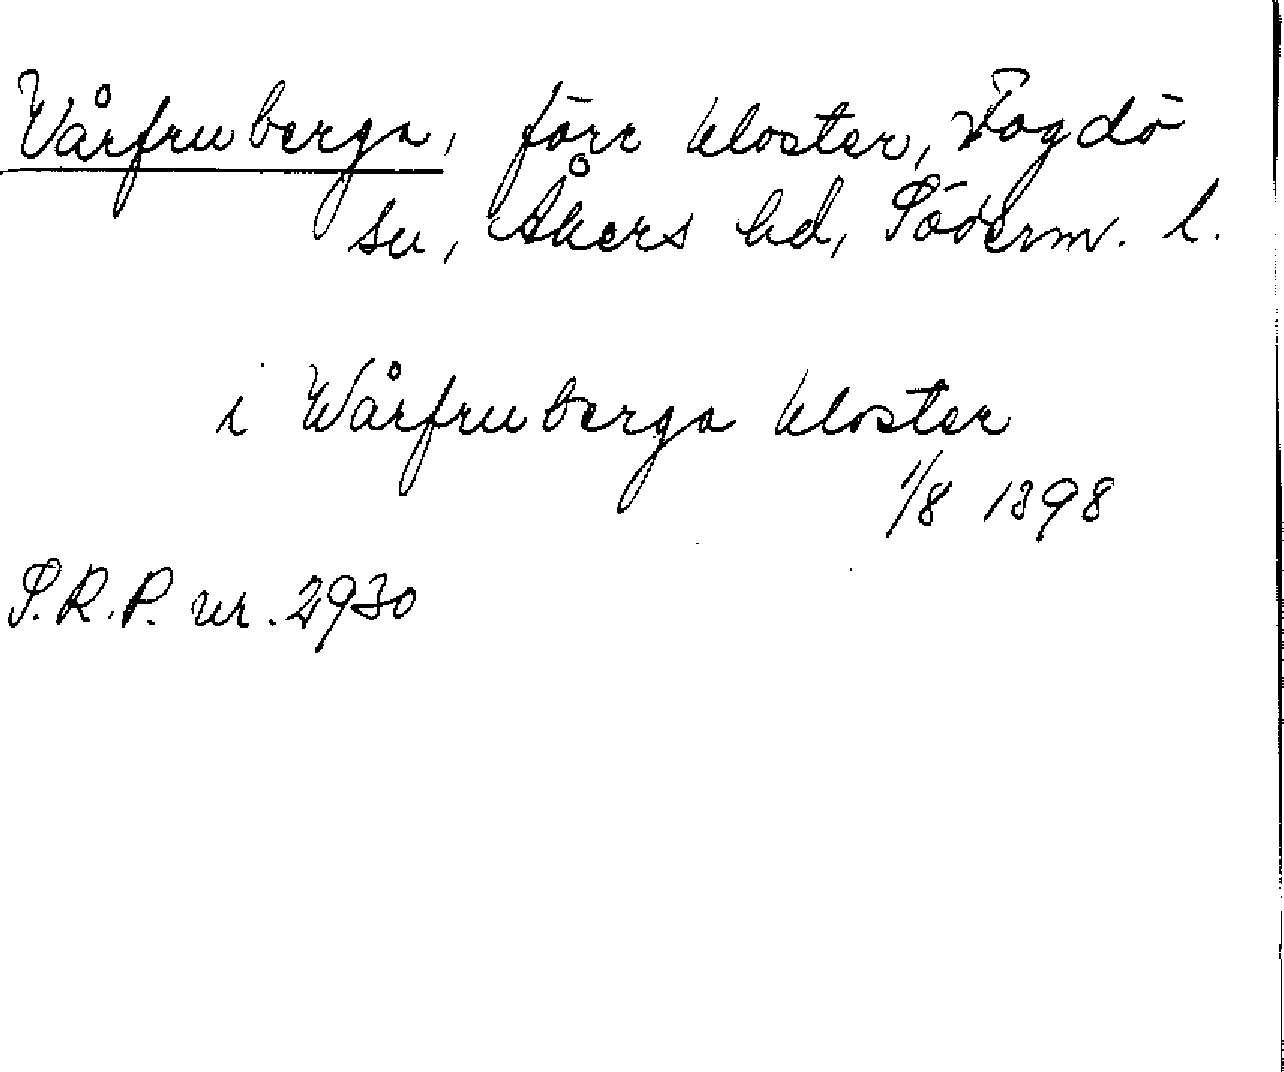 Vårfruberga, förr kloster, Fogdö
sn, Åkers hd, Söderm. l.
i Wårfruberga kloster
1/8 1398
S.R.P. nr. 2930